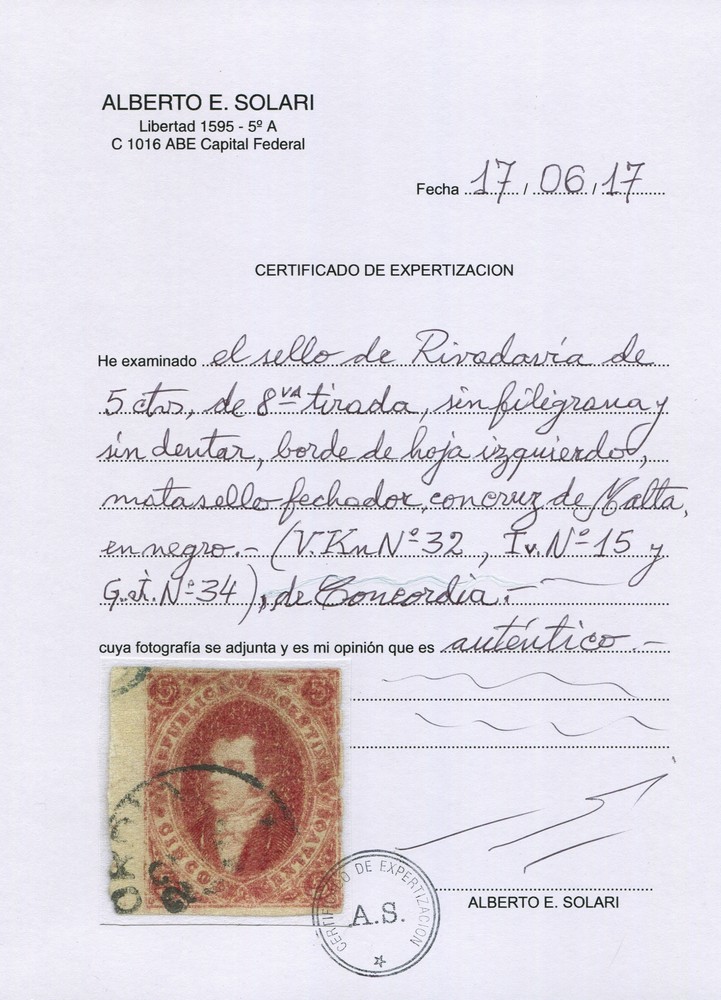 ALBERTO E. SOLARI
Libertad 1595 - 5º A
C 1016 ABE Capital Federal
Fecha 17 / 06 / 17
CERTIFICADO DE EXPERTIZACION
He examinado el sello de Rivadavia de
5 ctvs, de 8VA tirada, sin filigrana y
sin dentar, borde de hoja izquierdo,
matasello fechador, con cruz de Malta,
en negro.- (V.Kn Nº 32, Iv. Nº 15 y
G.J. Nº 34), de Concordia.-
cuya fotografía se adjunta y es mi opinión que es auténtico.-
REPUBLICA ARGENTINA
CINCO CENTAVOS
CERTIFICADO DE EXPERTIZACION
A.S.
ALBERTO E. SOLARI